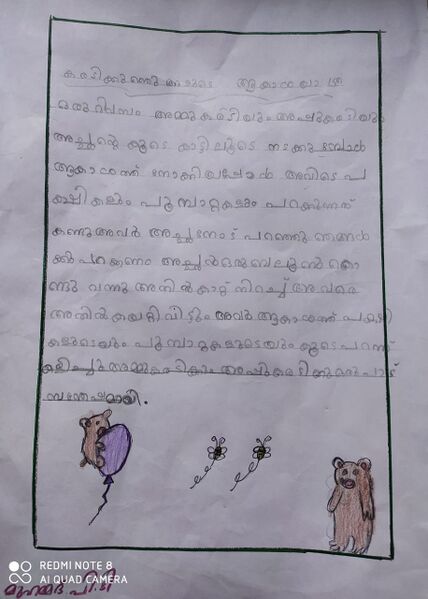 കരടിക്കുഞ്ഞുങ്ങളുടെ ആകാശയാത്ര
ഒരുദിവസം അമ്മുകരടിയും അപ്പുകരടിയും
അച്ഛന്റെ കൂടെ കാട്ടിലൂടെ നടക്കുമ്പോൾ
ആകാശത്ത് നോക്കിയപ്പോൾ അവിടെ പ
ക്ഷികളും പൂമ്പാറ്റകളും പറക്കുന്നത്
കണ്ടു അവർ അച്ഛനോട് പറഞ്ഞു ഞങ്ങൾ
ക്കും പറക്കണം അച്ഛൻ ഒരു ബലൂൺ കൊ
ണ്ടു വന്നു അതിൽ കാറ്റ് നിറച്ച് അവരെ
അതിൽ കയറ്റി വിട്ടും അവർ ആകാശത്ത് പക്ഷി
കളുടെയും പൂമ്പാറ്റകളുടെയും കൂടെ പറന്ന്
കളിച്ചു അമ്മുകരടിക്കും അപ്പുകരടിക്കും ഒരുപാട്
സന്തോഷമായി.
REDMI NOTE 8
AI QUAD CAMERA
പി.ടി